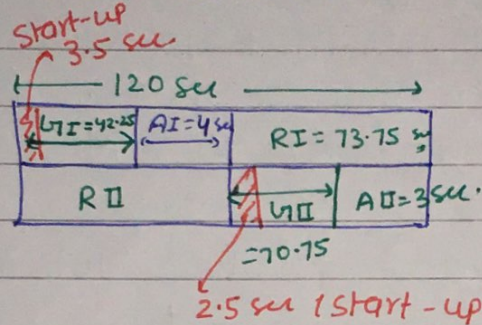 Start-up
3.5 sec
120 sec
GI = 42.25 AI = 4 sec RI = 73.75 sec
RII GII AII = 3 sec.
= 70.75
2.5 sec (Start-up